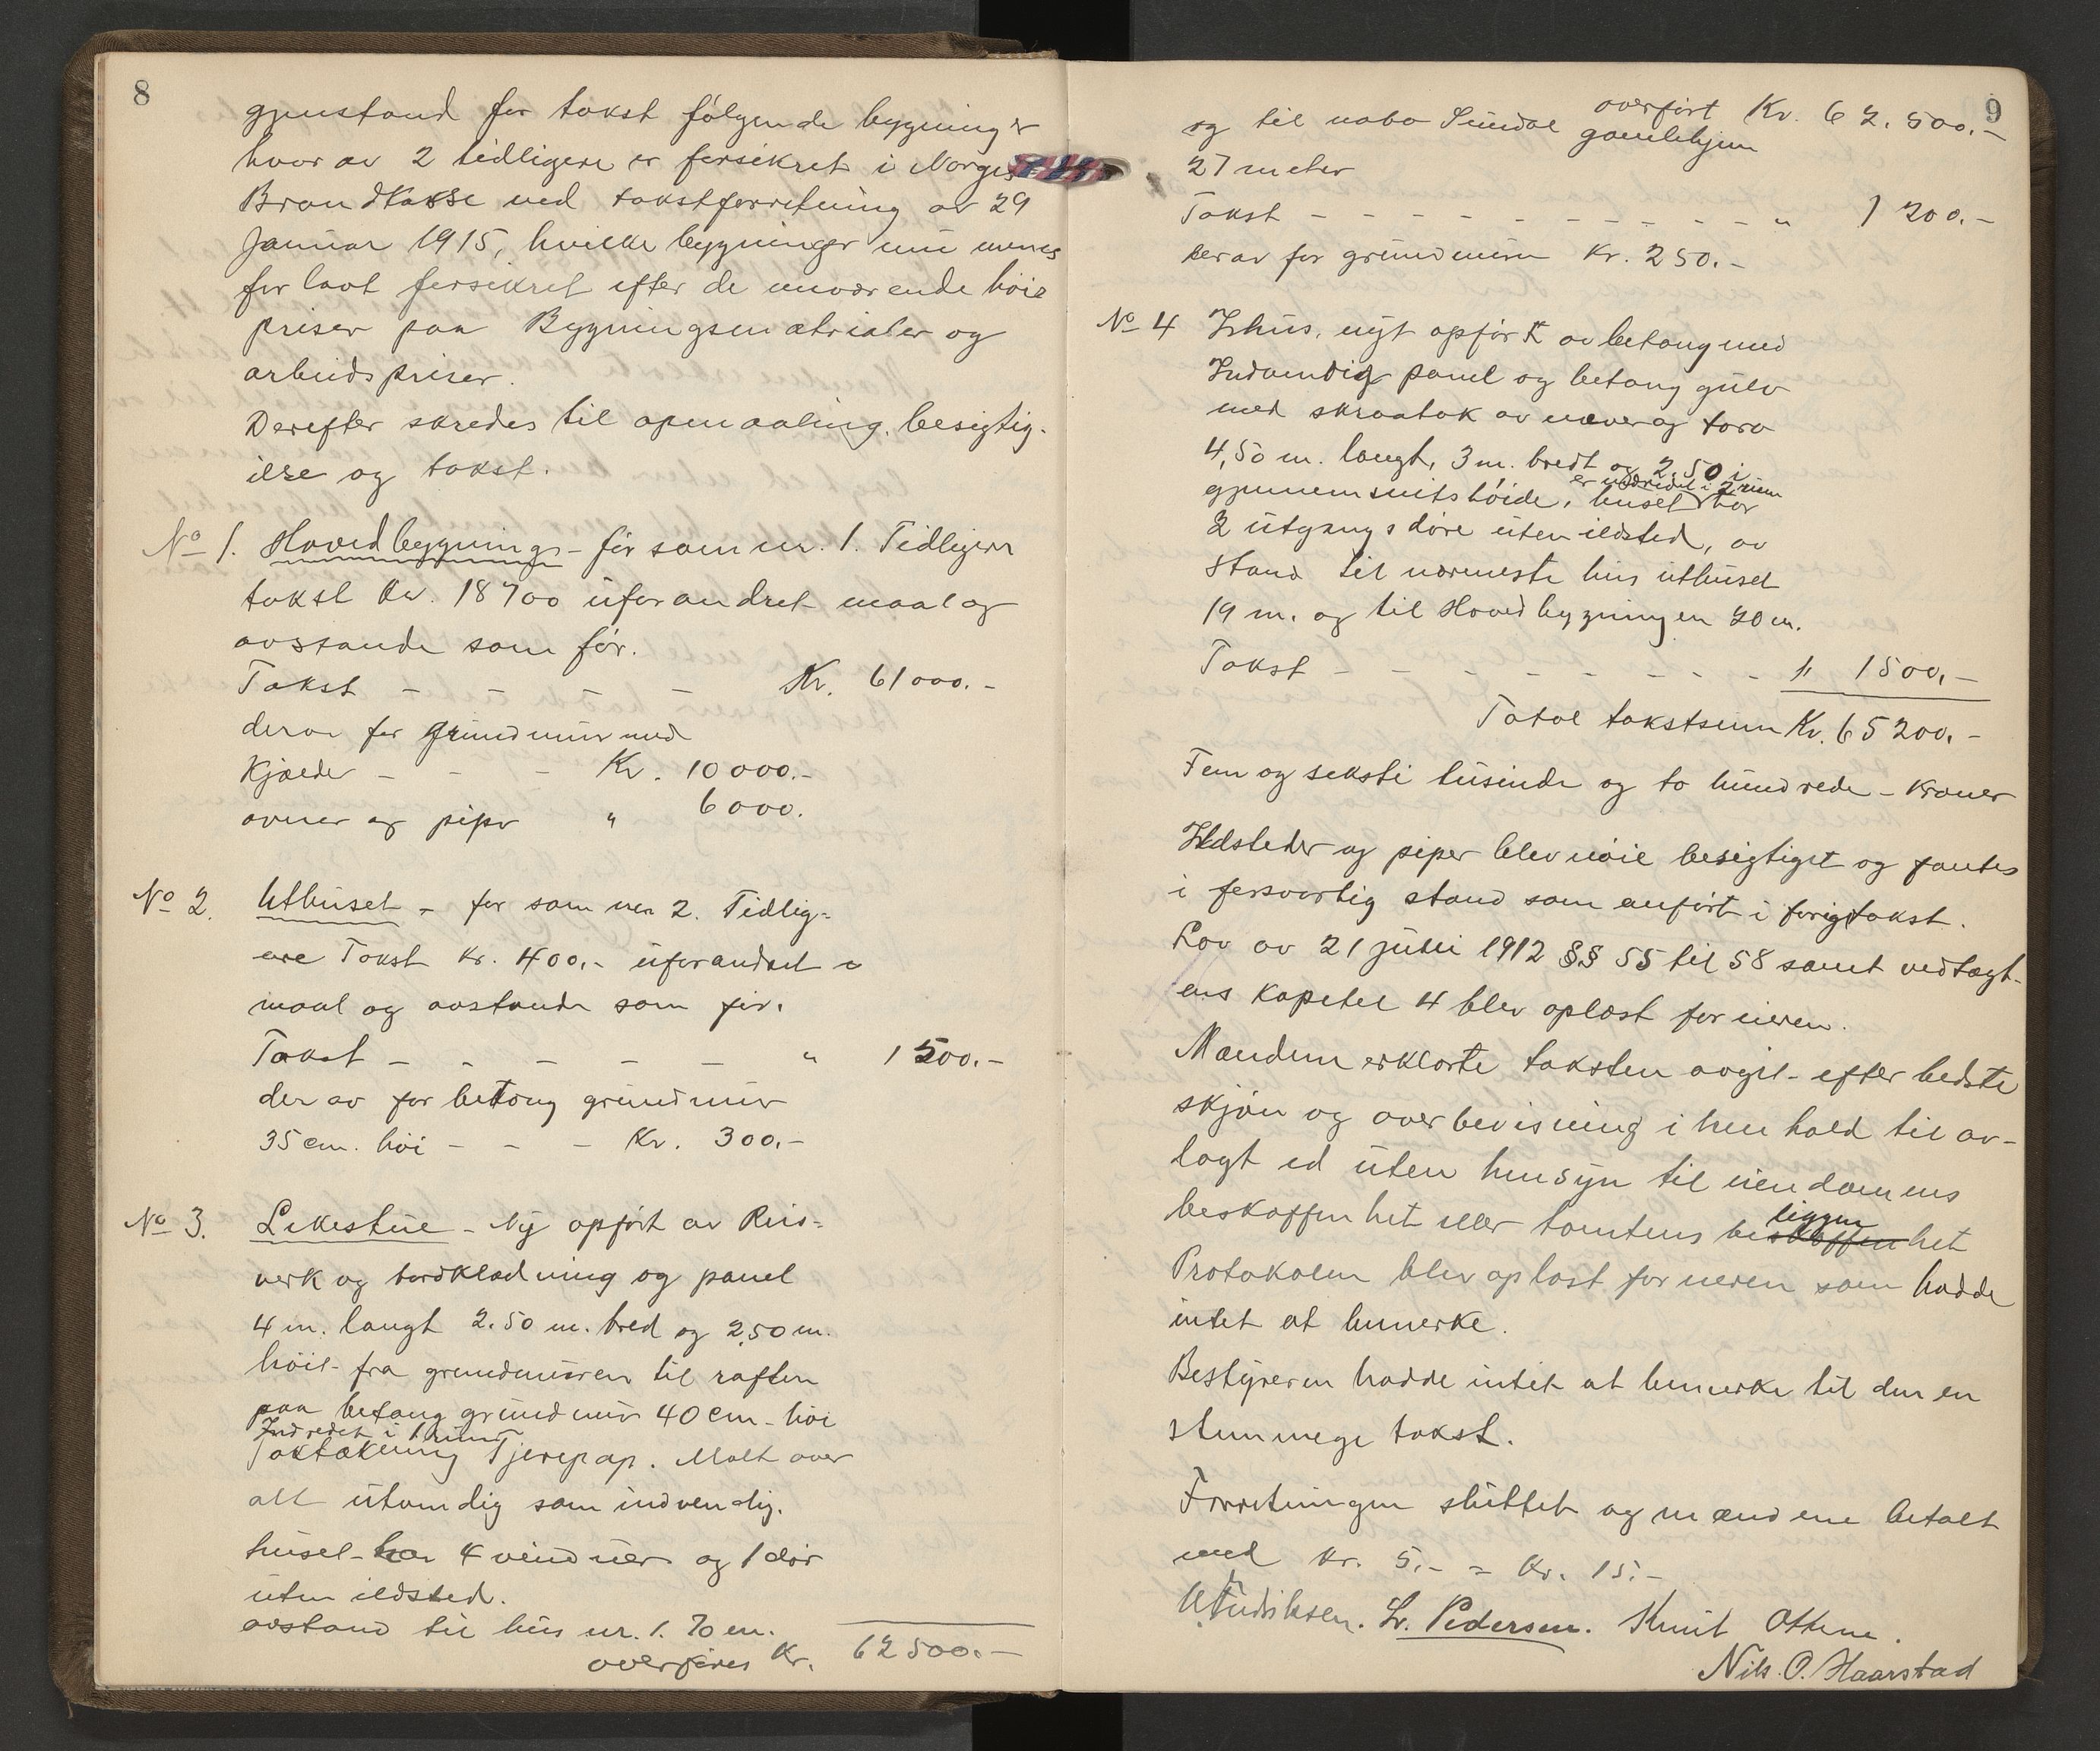 8
gjenstand for takst følgende bygninger
hvor av 2 tidligere er forsikret i Norges
Brandkasse ved takstforretning av 29
Januar 1915, hvilke bygninger nu menes
for lavt forsikret efter de nuværende høie
priser paa Bygningsmatrialer og
arbeidspriser.
Derefter skredes til opmaaling, besigtig-
else og takst.
No 1. Hovedbygning - før som nr. 1. Tidligere
takst Kr. 18700 uforandret maal og
avstande som før.
Takst - - - - Kr. 61000.-
derav for grundmur med
Kjælder - - - Kr. 10000.-
ovner og piper " 6000.
No 2. Uthuset - før som nr. 2. Tidlig-
ere Takst Kr. 400.- uforandret
maal og avstande som før.
Takst - - - - - " 1500.-
der av for betong grundmur
35 cm. høi - - - Kr. 300.-
No 3. Lekestue - Ny opført av Reis-
verk og bordklædning og panel
4 m. langt 2.50 m. bred og 2,50 m.
høit fra grundmuren til raften
paa betong grundmur 40 cm - høi
Indredet i 1 rum
Taktækning Tjærepap. Malt over
alt utvendig som indvendig.
huset har 4 vinduer og 1 dør
uten ildsted.
avstand til hus nr. 1. 70 m.
overføres Kr. 62500.-
9
overført Kr. 62.500.-
og til nabo Sundal gamlehjem
27 meter
Takst - - - - - - - - - " 1200.-
herav for grundmur Kr. 250.-
No 4 Ishus, nyt opført av betong med
Indvendig panel og betong gulv
med skraatak av never og torv
4,50 m. langt, 3 m. bredt og 2.50 i
er inddredet i 2 rum
gjennemsnitshøide, huset har
2 utgangsdøre uten ildsted, av
stand til nærmeste hus uthuset
19 m. og til Hovedbygningen 20 m.
Takst - - - - - - - - " 1500.-
Total takstsum Kr. 65200.-
Fem og seksti tusinde og to hundrede - kroner
Ildsteder og piper blev nøie besigtiget og fantes
i forsvarlig stand som anført i forige takst.
Lov av 21 juli 1912 §§ 55 til 58 samt vedtægt-
ens kapitel 4 blev oplæst for eieren.
Mændene erklærte taksten avgit efter bedste
skjøn og overbevisning i henhold til av-
lagt ed uten hensyn til eiendommens
beskaffenhet eller tomtens beskaffenhet
liggen
Protokolen blev oplæst for eieren som hadde
intet at bemerke.
Bestyreren hadde intet at bemerke til den en
stemmege takst.
Forretningen sluttet og mændene betalt
med Kr. 5.- = Kr. 15.-
Pedersen. Knut
Nils. O. Haarstad